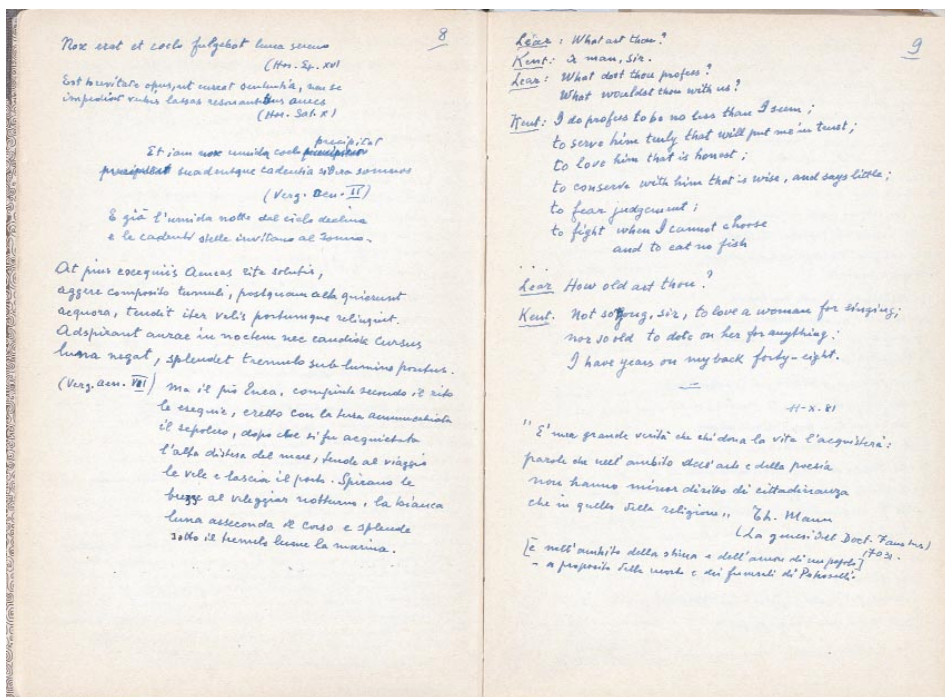 8
Nox erat et coelo fulgebat luna sereno
(Hor. Ep. XV)
Est brevitate opus, ut currat sententia, neu se
impediat verbis lassas resonantibus aures
(Hor. Sat. X)
precipitat
Et iam nox umida coelo
suadentque cadentia sidera somnos
(Verg. Aen. II)
E già l'umida notte dal cielo declina
e le cadenti stelle invitano al sonno.
At pius exequiis Aeneas rite solutis,
aggere composito tumuli, postquam alta quierunt
aequora, tendit iter velis portumque relinquit.
Adspirant aurae in noctem nec candida cursus
luna negat, splendet tremulo sub lumine pontus.
(Verg. Aen. VII) Ma il pio Enea, compiute secondo il rito
le esequie, eretto con la terra ammucchiata
il sepolcro, dopo che si fu acquietata
l'alta distesa del mare, tende al viaggio
le vele e lascia il porto. Spirano le
brezze al veleggiar notturno, la bianca
luna asseconda il corso e splende
sotto il tremulo lume la marina.
9
Lear: What art thou?
Kent: A man, sir.
Lear: What dost thou profess?
What wouldst thou with us?
Kent: I do profess to be no less than I seem;
to serve him truly that will put me in trust;
to love him that is honest;
to conserve with him that is wise, and says little;
to fear judgement;
to fight when I cannot choose
and to eat no fish
...
Lear How old art thou?
Kent. Not so yong, sir, to love a woman for singing;
nor so old to dote on her for anything:
I have years on my back forty-eight.
11-X-81
"E' una grande verità che chi dona la vita l'acquisterà:
parole che nell'ambito dell'arte e della poesia
non hanno minor diritto di cittadinanza
che in quello della religione" Th. Mann
(La genesi del Doct. Faustus)
[e nell'ambito della stima e dell'amore di un popolo]
- a proposito della morte e dei funerali di